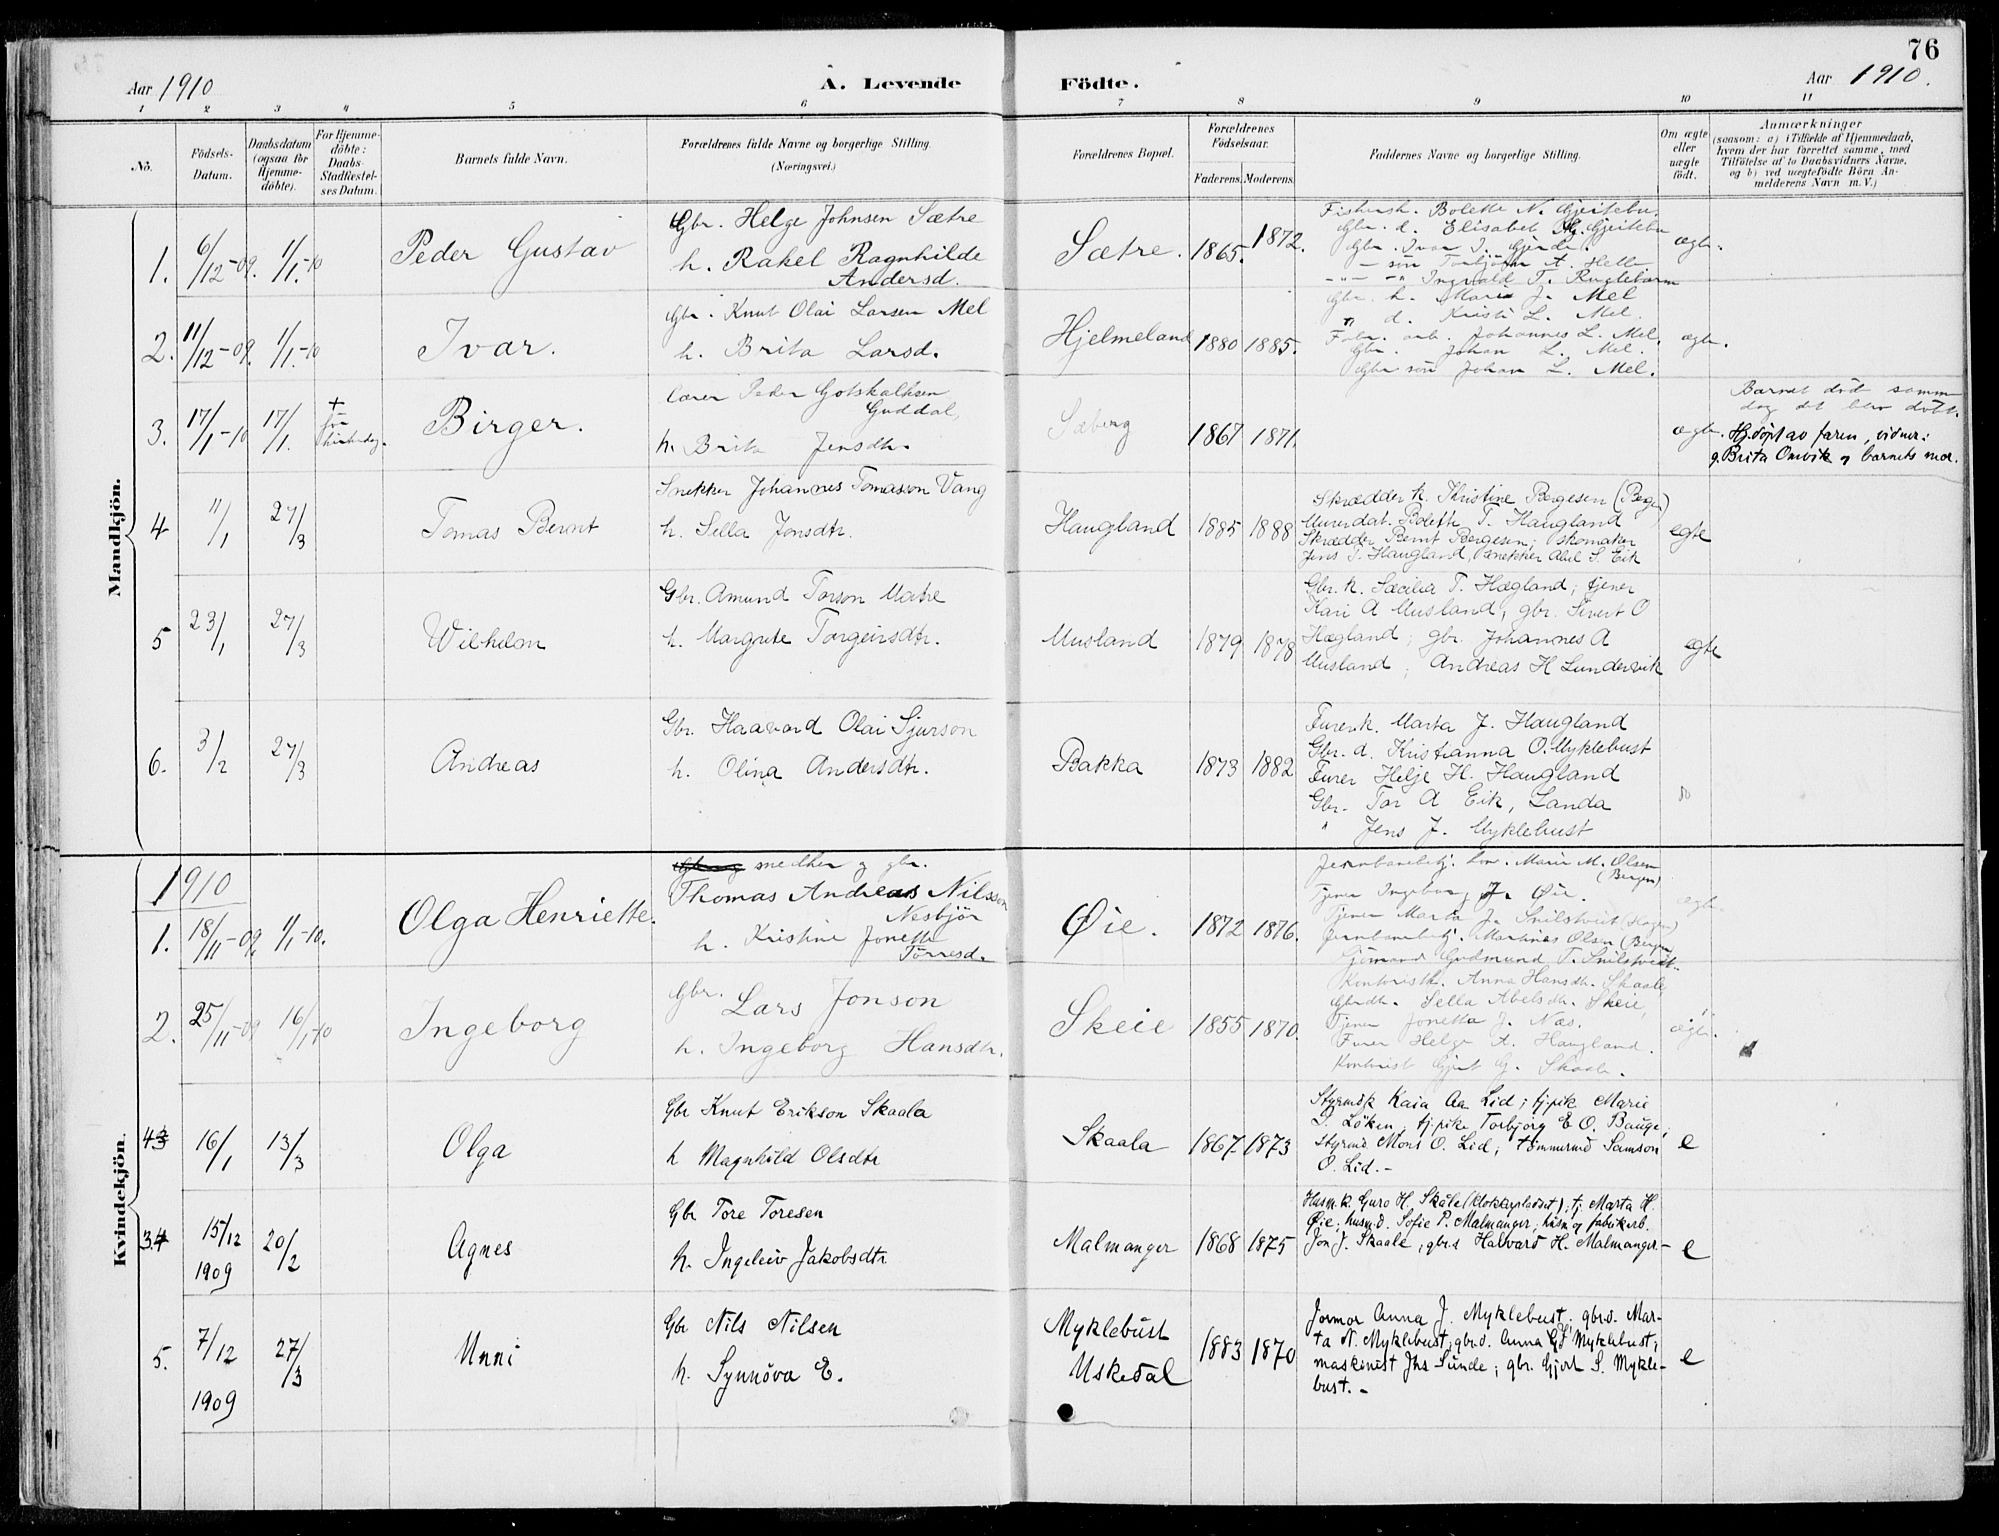 76
Aar 1910
A. Levende
Födte.
Aar 1910.
1 2 3 4 5 6 7 8 9 10 11
No.
Födsels-
Datum.
Daabsdatum
(ogsaa for
Hjemme-
döbte).
For Hjemme-
döbte:
Daabs-
Stadfæstel-
ses Datum.
Barnets fulde Navn.
Forældrenes fulde Navne og borgerlige Stilling.
(Næringsvei.)
Forældrenes Bopæl.
Forældrenes
Födselsaar.
Faderens. Moderens.
Faddernes Navne og borgerlige Stilling.
Om ægte
eller
uægte
födt.
Anmærkninger
(saasom: a) i Tilfælde af Hjemmedaab,
hvem der har forrettet samme, med
Tilföielse af to Daabsvidners Navne,
og b) ved uægtefödte Börn An-
melderens Navn m. V.)
Mandkjön.
1. 6/12-09. 1/1-10
Peder Gustav
Gbr. Helge Johnsen Sætre
h. Rakel Ragnhilde
Andersd.
Sætre. 1865. 1872.
Fiskersk. Bolette N. Gjeitebu.
Gbr. d. Elisabet Gjeitebu
Gbr. Ivar I.
- sön Torbjörn A. Helle
Ingvald T.
ægte.
2. 11/12-09. 1/1-10
Ivar.
Gbr. Knut Olai Larsen Mel
h. Brita Larsd.
Hjelmeland 1880 1885.
Gbr. h. Mari J. Mel
" d. Kristi L. Mel.
Fabr. arb. Johannes L. Mel.
Gbr. Johan L. Mel.
Gbr sön Johan L. Mel.
ægte.
3. 17/1-10 17/1.
+
för
Birger.
Lærer Peder Gotskalksen
Guddal,
h. Brita Jensdtr.
Sæberg 1867 1871.
ægte.
Barnet död samme
dag det blev döbt.
Hj.döpt av faren, vidner:
g. Brita Omvik og barnets mor.
4 11/1 27/3
Tomas Bernt
Snekker Johannes Tomasson Vang
h. Sella Jonsdtr.
Haugland 1885 1888
Skrædder k. Kristine Bergesen (Bergen)
Murerdat. Bolette T. Haugland
Skrædder Bernt Bergesen; skomaker
Jens T. Haugland, snekker Abel S. Eik
egte
5 23/1 27/3
Wilhelm
Gbr. Amund Torson Matre
h. Margrete Torgeirsdtr.
Musland 1879 1878
Gbr. k. Sæcilia T. Hægland; tjener
Kari A Musland; gbr. Sivert O
Hægland; gbr. Johannes A
Musland; Andreas H Lundervik
ægte
6. 3/2 27/3
Andreas
Gbr. Haavard Olai Sjurson
h. Olina Andersdtr.
Bakka 1873 1882
Furer k. Marta J. Haugland
Gbr. d. Kristianna O. Myklebust
Furer Helje H. Haugland
Gbr. Tor A Eik, Landa
" Jens J. Myklebust
do
Kvindekjön.
1910
1. 18/11-09. 1/1-10.
Olga Henriette.
smedker og gbr.
Thomas Andreas Nilsson
Nesbjör
h. Kristine Jonette
Törresd.
Øie. 1872 1876.
Jernbanebetj. kone. Marie M. Olsen
(Bergen)
Tjener Ingeborg J. Øie.
Tjener Marta J. Snilstveit
Jernbanebetj. Martines Olsen (Bergen)
Sjömand Gudmund T. Snilstveit.
ægte
2. 25/11-09 16/1-10
Ingeborg
Gbr. Lars Jonson
h. Ingeborg Hansdtr.
Skeie 1855 1870.
Kontoristk. Anna Hansdtr. Skaale,
Gbrdtr. Sella Abelsdtr. Skeie,
Tjener Jonetta J. Næs.
Furer Helge A. Haugland.
Kontorist Gjert G. Skaale.
ægte.
43 16/1 13/3
Olga
Gbr Knut Erikson Skaala
h Magnhild Olsdtr
Skaala 1867 1873
Styrmsk Kaia Aa Lid; tj.pik Marie
S. Löken; tj.pike Torbjörg E O. Bauge;
Styrmd Mons O. Lid; tömmermd Samson
O. Lid.-
e
34 15/12 1909 20/2
Agnes
Gbr Tore Toresen
h. Ingeleiv Jakobsdtr
Malmanger 1868 1875
Husm.k. Guro H. Skåle (Klokkerpladset); tj. Marta H.
Øie; husm.d. Sofie P. Malmanger; husm og fabrikarb.
Jon J. Skaale; gbr.s Halvard H. Malmanger.-
e
5. 7/12 1909 27/3
Unni
Gbr Nils Nilsen
h. Synnöva E.
Myklebust
Uskedal 1883 1870
Jormor Anna J. Myklebust; gbr.d. Mar-
ta N. Myklebust; gbr.d. Anna G J Myklebust;
maskinist Jhs Sunde; gbr. Gjert S. Mykle-
bust.-
e